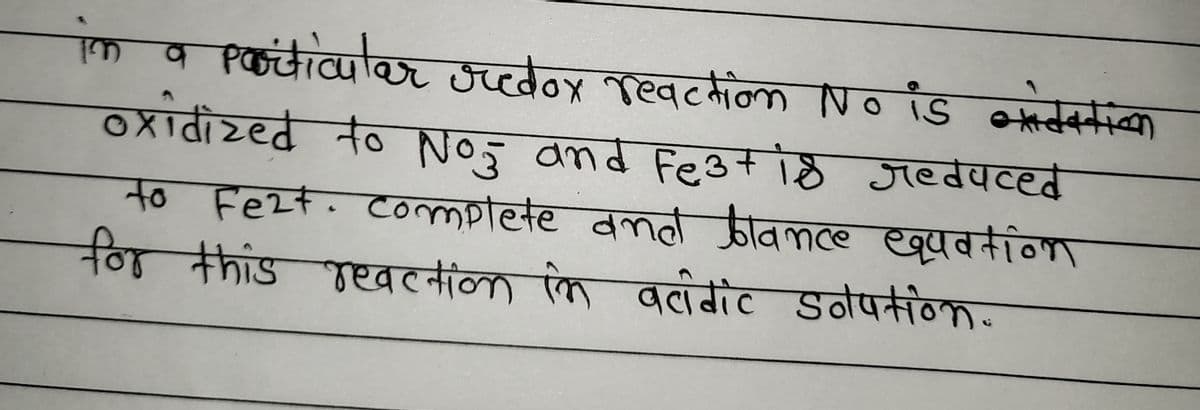 in a particular redox reaction NO is oxidation
oxidized to NO3- and Fe3+ is reduced
to Fe2+. complete and blance equation
for this reaction in acidic solution.